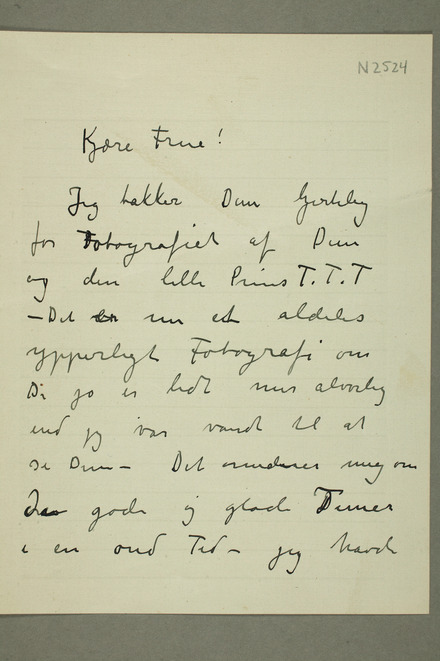 N2524
Kjære Frue!
Jeg takker Dem hjertelig
for Fotografiet af Dem
og den lille Prins T.T.T
– Det er nu et aldeles
ypperligt Fotografi om
De jo er lidt mer alvorlig
end jeg var vandt til at
se Dem – Det minder mig om
gode og glade Timer
i en ond Tid – jeg havde